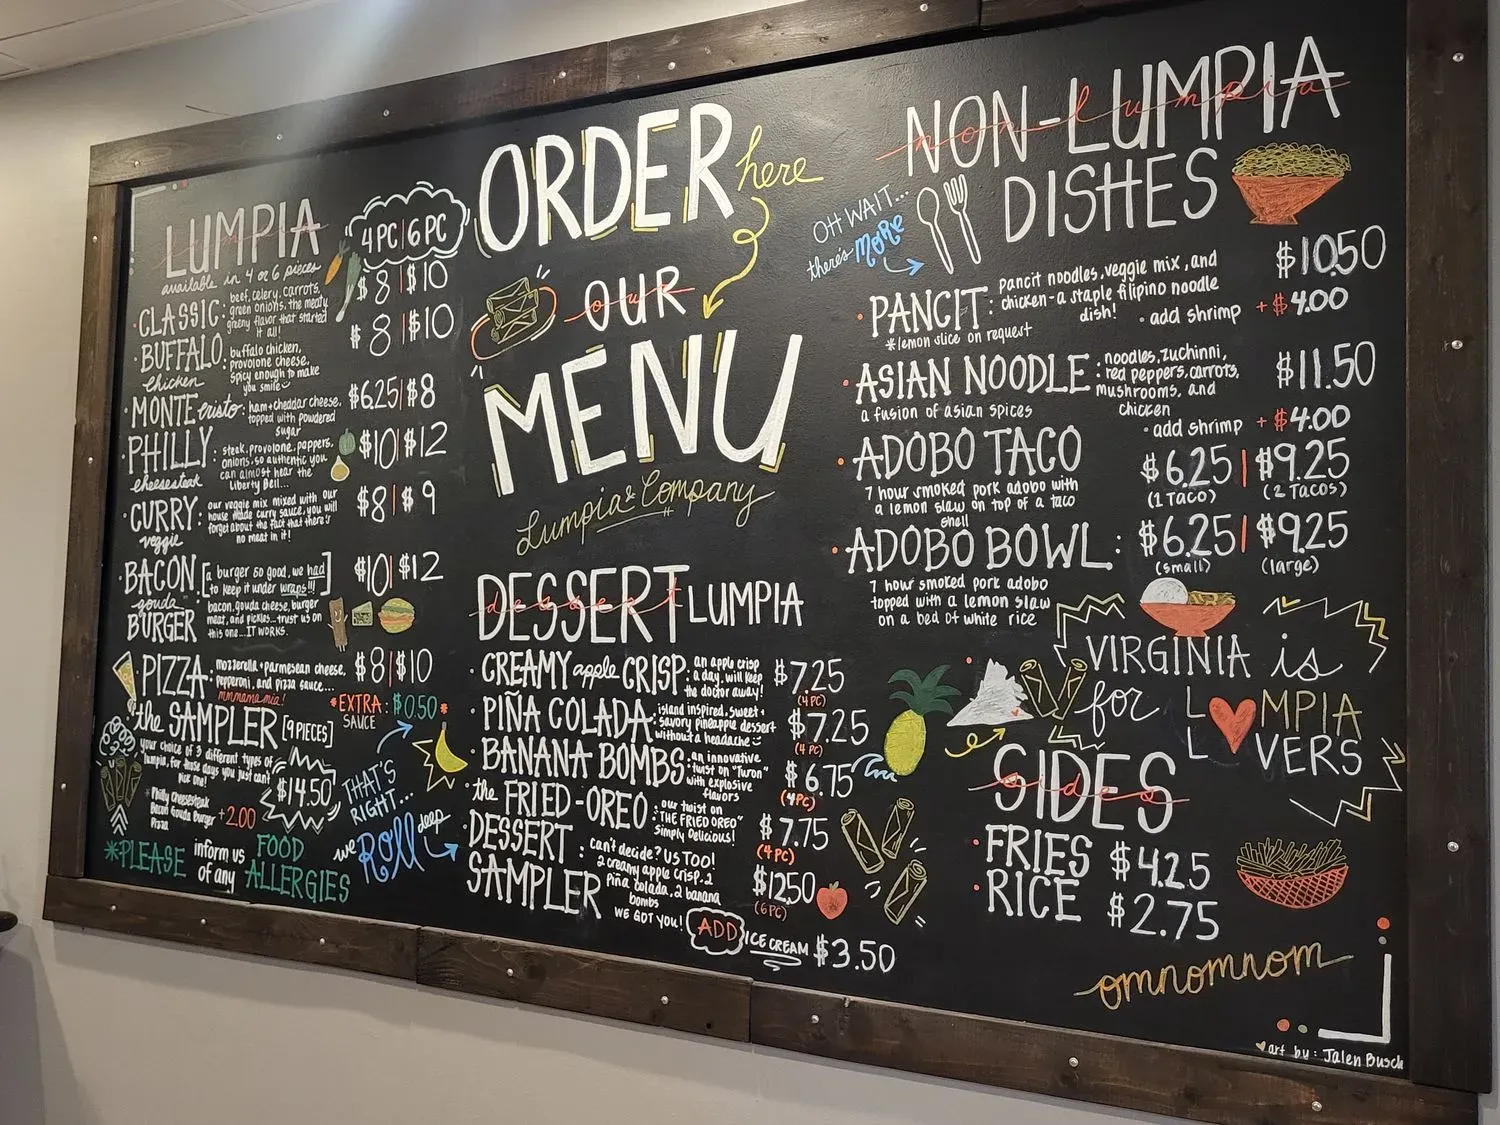 LUMPIA
4PC|6PC
available in 4 or 6 pieces
CLASSIC: beef, celery, carrots, $8|$10
green onions, the meaty
greeny flavor that started
it all!
BUFFALO: buffalo chicken, $8|$10
chicken provolone cheese,
spicy enough to make
you smile
MONTE cristo: ham+cheddar cheese, $6.25|$8
topped with powdered
sugar
PHILLY: steak, provolone, peppers, $10|$12
cheesesteak onions, so authentic you
can almost hear the
Liberty Bell...
CURRY: our veggie mix mixed with our $8|$9
veggie house made curry sauce, you will
forget about the fact that there's
no meat in it!
BACON [a burger so good, we had] $10|$12
gouda to keep it under wraps!!!
BURGER bacon, gouda cheese, burger
meat, and pickles...trust us on
this one...IT WORKS.
PIZZA: mozzerella+parmesean cheese, $8|$10
pepperoni, and pizza sauce...
mmmamamia!
*EXTRA: $0.50*
SAUCE
the SAMPLER [9 PIECES]
your choice of 3 different types of
lumpia, for those days you just can't
pick one!
$14.50
*Philly Cheesesteak
Bacon Gouda Burger +2.00
Pizza
THAT'S
RIGHT...
we Roll deep
*PLEASE inform us FOOD
of any ALLERGIES
ORDER here
our
MENU
Lumpia & Company
DESSERT LUMPIA
dessert
CREAMY apple CRISP: an apple crisp $7.25
a day, will keep (4PC)
the doctor away!
PIÑA COLADA: island inspired, sweet+ $7.25
savory pineapple dessert (4 PC)
without a headache
BANANA BOMBS: an innovative $6.75
twist on "Turon" (4PC)
with explosive
flavors
the FRIED-OREO: our twist on $7.75
"THE FRIED OREO" (4PC)
Simply Delicious!
DESSERT : can't decide? US TOO! $12.50
SAMPLER 2 creamy apple crisp, 2 (6PC)
piña colada, 2 banana
bombs
WE GOT YOU!
ADD ICE CREAM $3.50
NON-LUMPIA
non-lumpia
DISHES
OH WAIT...
there's MORE
PANCIT: pancit noodles, veggie mix, and $10.50
chicken-a staple filipino noodle
dish!
*lemon slice on request
• add shrimp +$4.00
ASIAN NOODLE: noodles, zuchinni, $11.50
a fusion of asian spices red peppers, carrots,
mushrooms, and
chicken
• add shrimp +$4.00
ADOBO TACO $6.25|$9.25
(1 Taco) (2 Tacos)
7 hour smoked pork adobo with
a lemon slaw on top of a taco
shell
ADOBO BOWL: $6.25|$9.25
(small) (large)
7 hour smoked pork adobo
topped with a lemon slaw
on a bed of white rice
VIRGINIA is
for L MPIA
L VERS
SIDES
sides
FRIES $4.25
RICE $2.75
omnomnom
art by: Jalen Busch